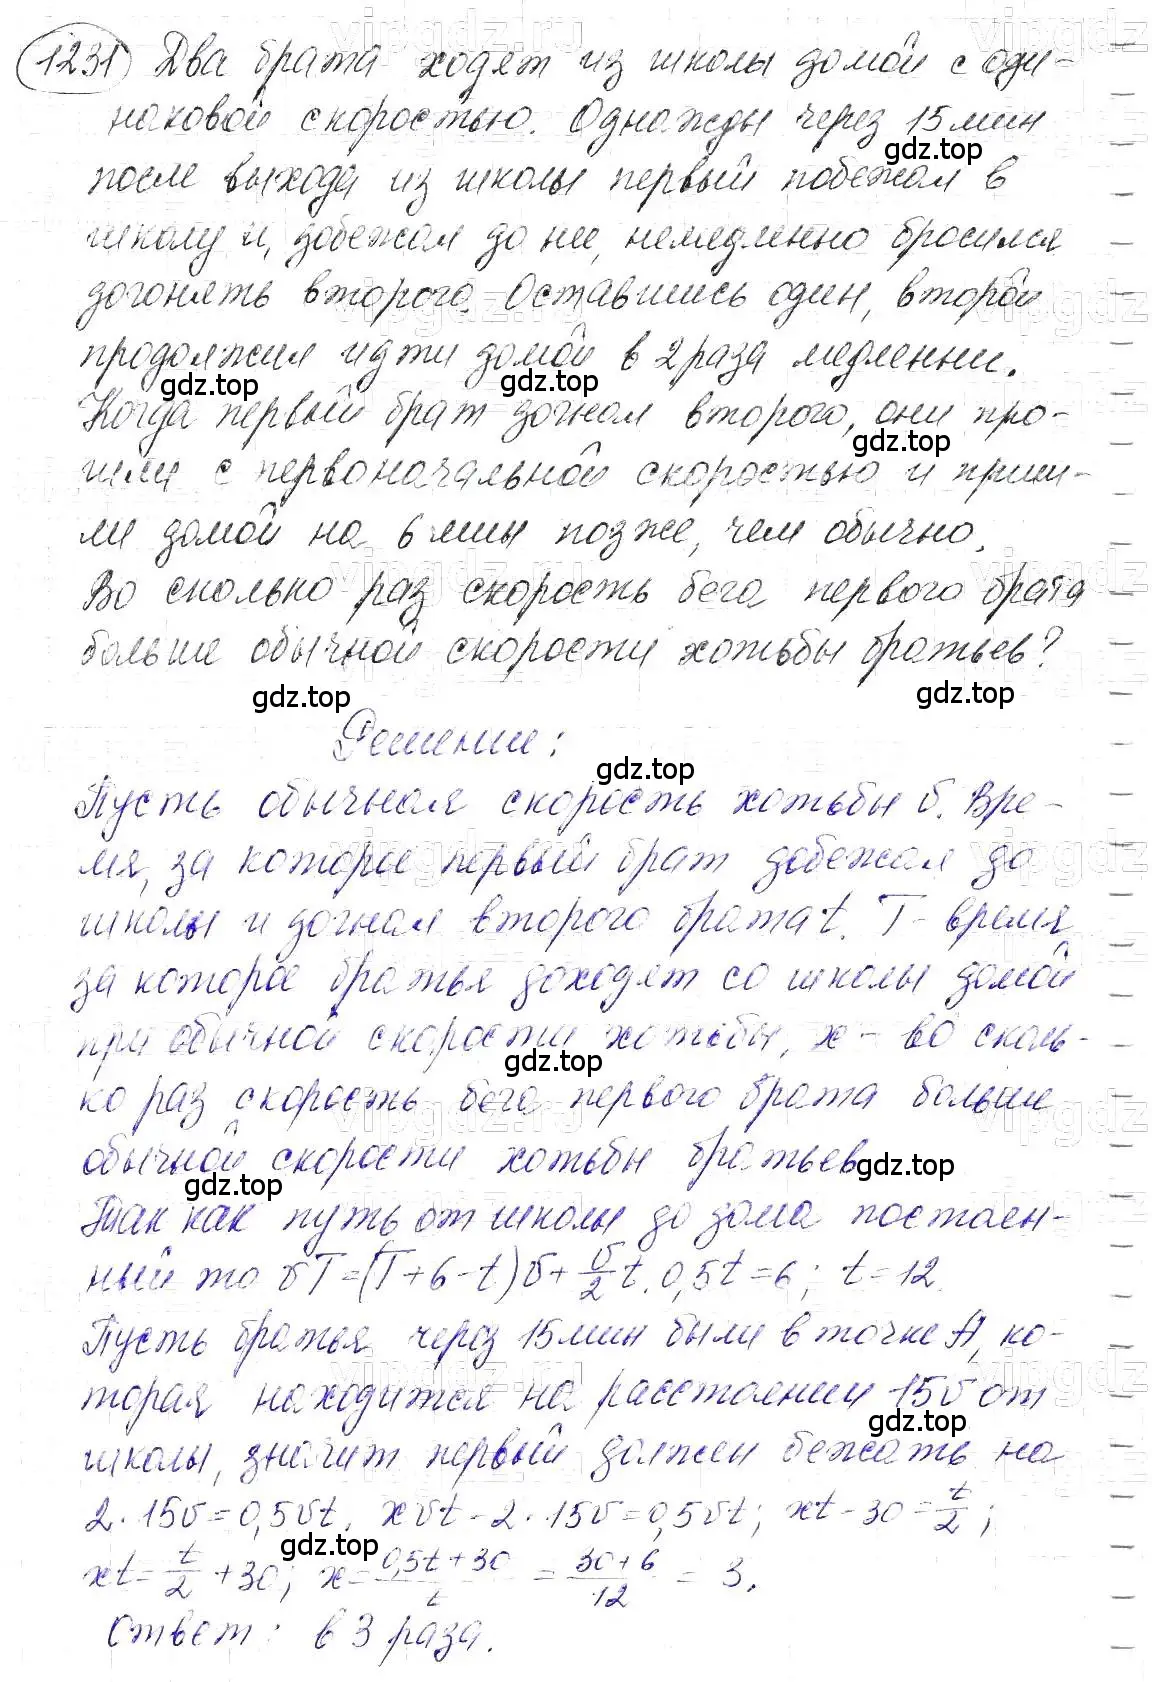 1231 Два брата ходят из школы домой с оди-
наковой скоростью. Однажды через 15 мин
после выхода из школы первый побежал в
школу и, добежал до нее, немедленно бросился
догонять второго. Оставшись один, второй
продолжил идти домой в 2 раза медленни.
Когда первый брат догнал второго, они про-
шли с первоначальной скоростью и приш-
ли домой на 6 мин позже, чем обычно.
Во сколько раз скорость бега первого брата
больше обычной скорости хотьбы братьев?
Решение:
Пусть обычная скорость хотьбы б. Вре-
мя, за которое первый брат добежал до
школы и догнал второго брата t. T - время
за которое братья доходят со школы домой
при обычной скорости хотьбы, x - во сколь-
ко раз скорость бега первого брата больше
обычной скорости хотьбы братьев
Так как путь от школы до дома постоен-
ный то υT=(T+6-t)υ+υ/2 t. 0,5t=6; t=12.
Пусть братья через 15 мин были в точке A, ко-
торая находится на расстоянии 15υ от
школы, значит первый должен бежать на
2·15υ=0,5υt. xυt-2·15υ=0,5υt; xt-30=t/2;
xt=t/2+30; x=(0,5t+30)/t=(30+6)/12=3.
Ответ: в 3 раза.
gdz.top
gdz.top
gdz.top
gdz.top
gdz.top
gdz.top
gdz.top
gdz.top
gdz.top
gdz.top
gdz.top
gdz.top